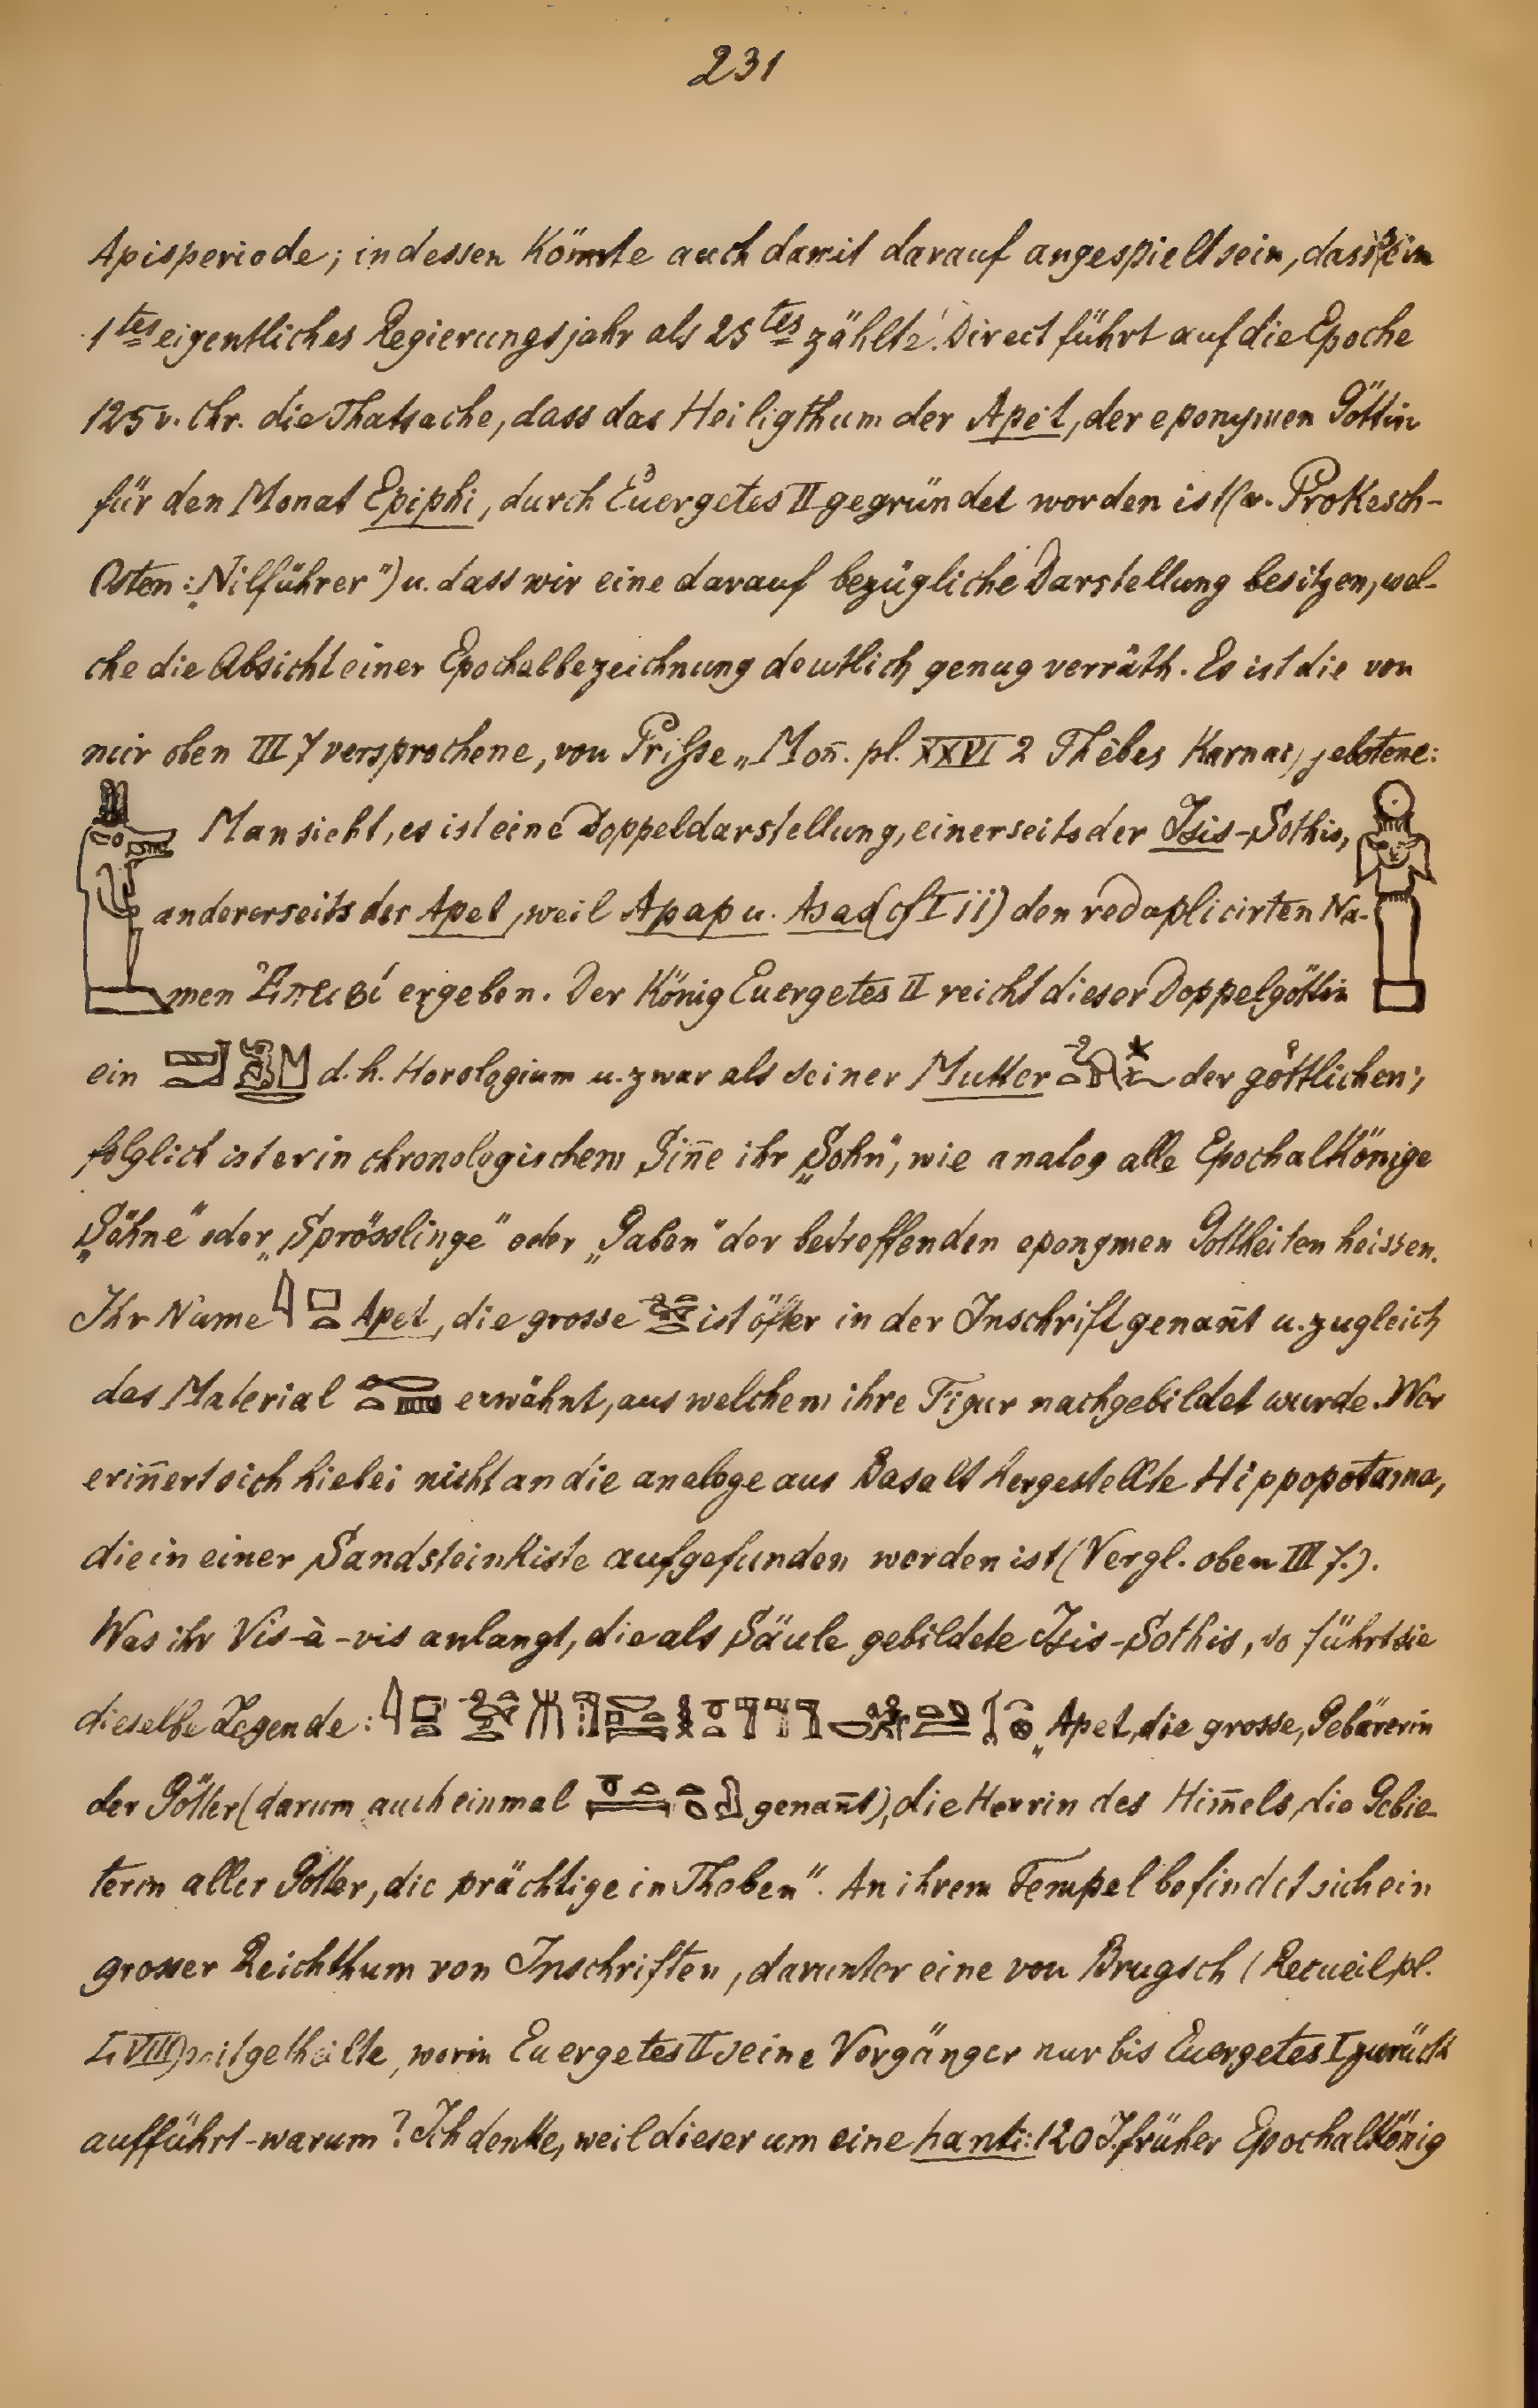 231
Apisperiode; indessen könnte auch damit darauf angespielt sein, dass sein
1tes eigentliches Regierungsjahr als 25tes zählte. Direct führt auf die Epoche
125 v. Chr. die Thatsache, dass das Heiligthum der Apet, der eponymen Göttin
für den Monat Epiphi, durch Euergetes II gegründet worden ist (v. Prokesch-
Osten: „Nilführer") u. dass wir eine darauf bezügliche Darstellung besitzen, wel-
che die Absicht einer Epochalbezeichnung deutlich genug verräth. Es ist die von
mir oben III 7 versprochene, von Prisse „Mon̄. pl. XXVI 2 Thèbes Karnac, gebotene:
Man sieht, es ist eine Doppeldarstellung, einerseits der Isis-Sothis,
andererseits der Apet, weil Apap u. Asad (cf I ii) den reduplicirten Na-
men ergeben. Der König Euergetes II reicht dieser Doppelgöttin
ein d. h. Horologium u. zwar als seiner Mutter der göttlichen;
folglich ist er in chronologischem Sin̄e ihr „Sohn", wie analog alle Epochalkönige
„Söhne" oder „Sprösslinge" oder „Gaben" der betreffenden eponymen Gottheiten heissen.
Ihr Name Apet, die grosse ist öfter in der Inschrift genan̄t u. zugleich
das Material erwähnt, aus welchem ihre Figur nachgebildet wurde. Wer
erin̄ert sich hiebei nicht an die analoge aus Basalt hergestellte Hippopotama,
die in einer Sandsteinkiste aufgefunden worden ist (Vergl. oben III 7.).
Was ihr Vis-à-vis anlangt, die als Säule gebildete Isis-Sothis, so führt sie
dieselbe Legende: „Apet, die grosse, Gebärerin
der Götter (darum auch einmal genan̄t), die Herrin des Him̄els, die Gebie-
terin aller Götter, die prächtige in Theben". An ihrem Tempel befindet sich ein
grosser Reichthum von Inschriften, darunter eine von Brugsch (Recueil pl.
mitgetheilte, worin Euergetes II seine Vorgänger nur bis Euergetes I zurück
aufführt - warum? Ich denke, weil dieser um eine hanti: 120 J. früher Epochalkönig